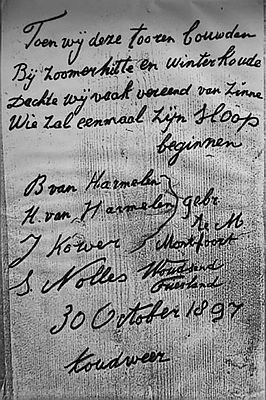 Toen wij deze tooren bouwden
Bij zoomerhitte en winterkoude
Dachte wij vaak vereend van zinne
Wie zal eenmaal zijn sloop
beginnen
B van Harmelen
H. van Harmelen gebr
J Kower te M
Montfoort
S. Nolles Woudsend
Friesland
30 October 1897
koudweer